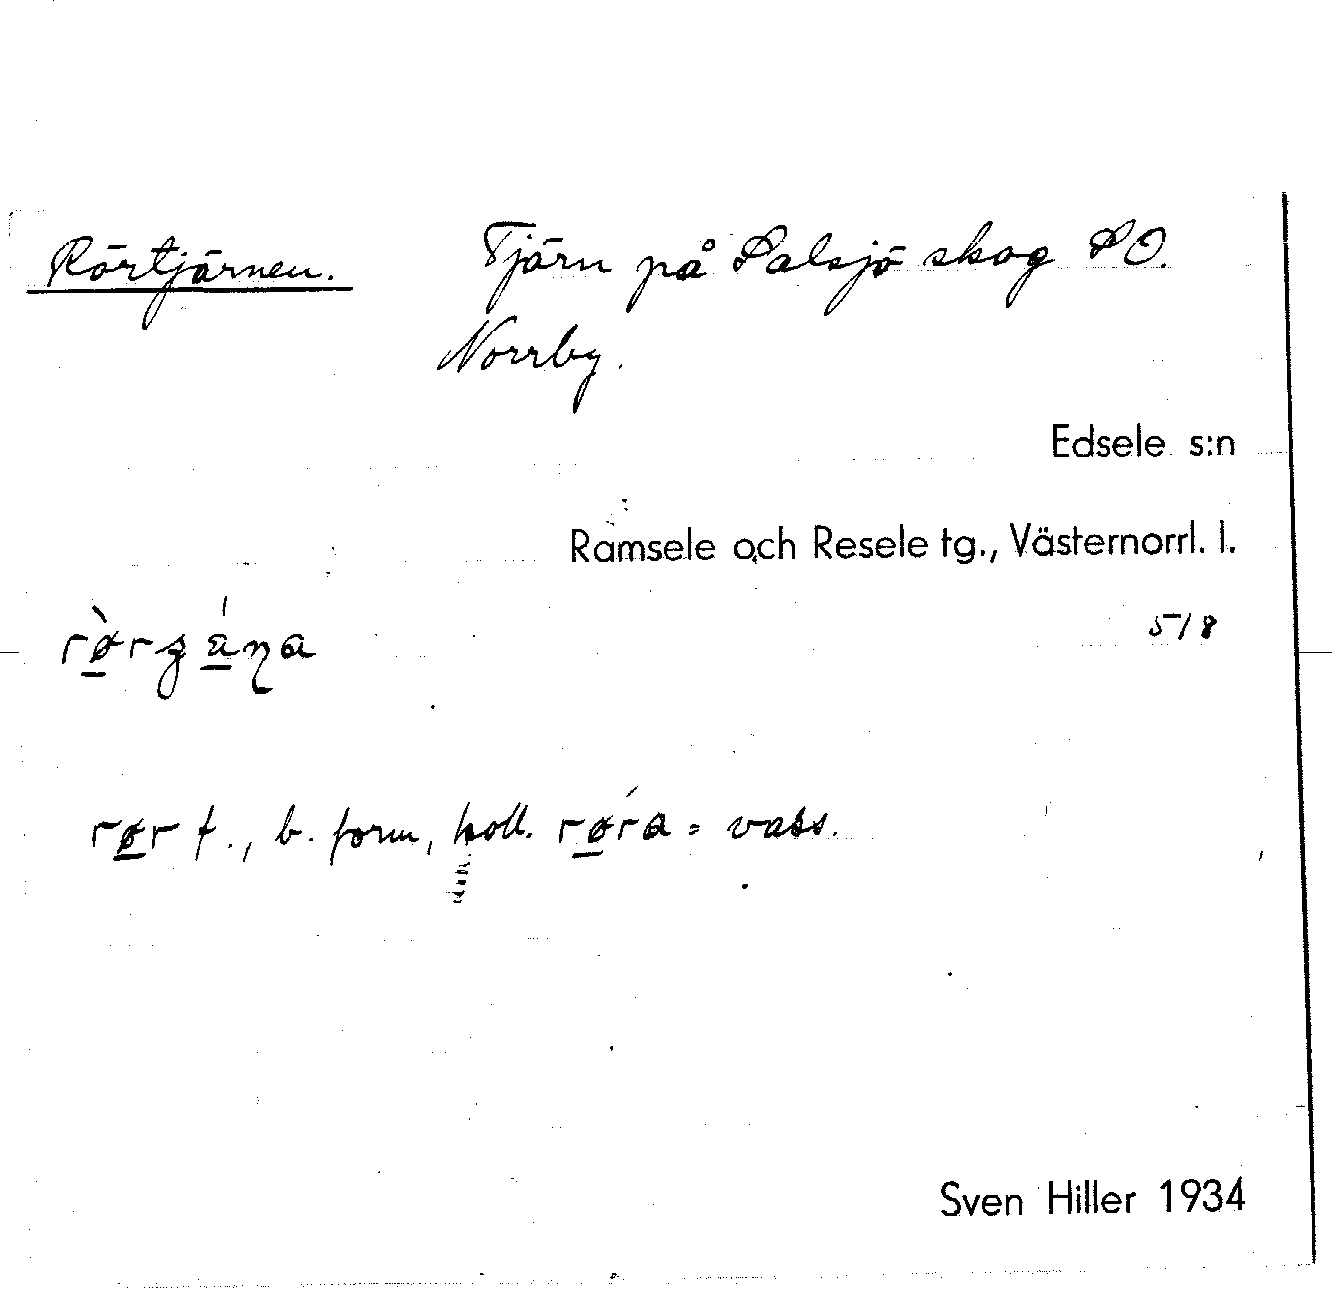 Rörtjärnen. Tjärn på Salsjö skog SO.
Norrby.
Edsele s:n
Ramsele och Resele tg., Västernorrl. l.
5/8
rør f., b. form, koll. røra = vass.
Sven Hiller 1934